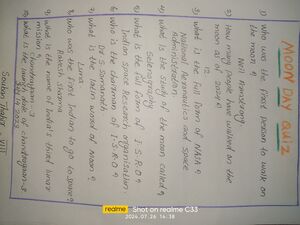 MOON DAY QUIZ
1) Who was the first person to walk on
the moon?
Neil Armstrong
2) How many people have walked on the
moon as of 2024?
12
3) What is the full form of NASA?
National Aeronautics and Space
Administration
4) What is the study of the moon called?
Selenography
5) What is the full form of I.S.R.O?
Indian Space Research Organisation
6) Who is the chairman of I.S.R.O?
Dr S. Somanath
7) What is the latin word of Moon?
Luna
8) Who was the first Indian to go to space?
Rakesh Sharma
9) What is the name of India's third lunar
mission?
Chandrayaan-3
10) What is the launch date of Chandrayaan-3
realme Shot on realme C33
2024.07.26 14:38